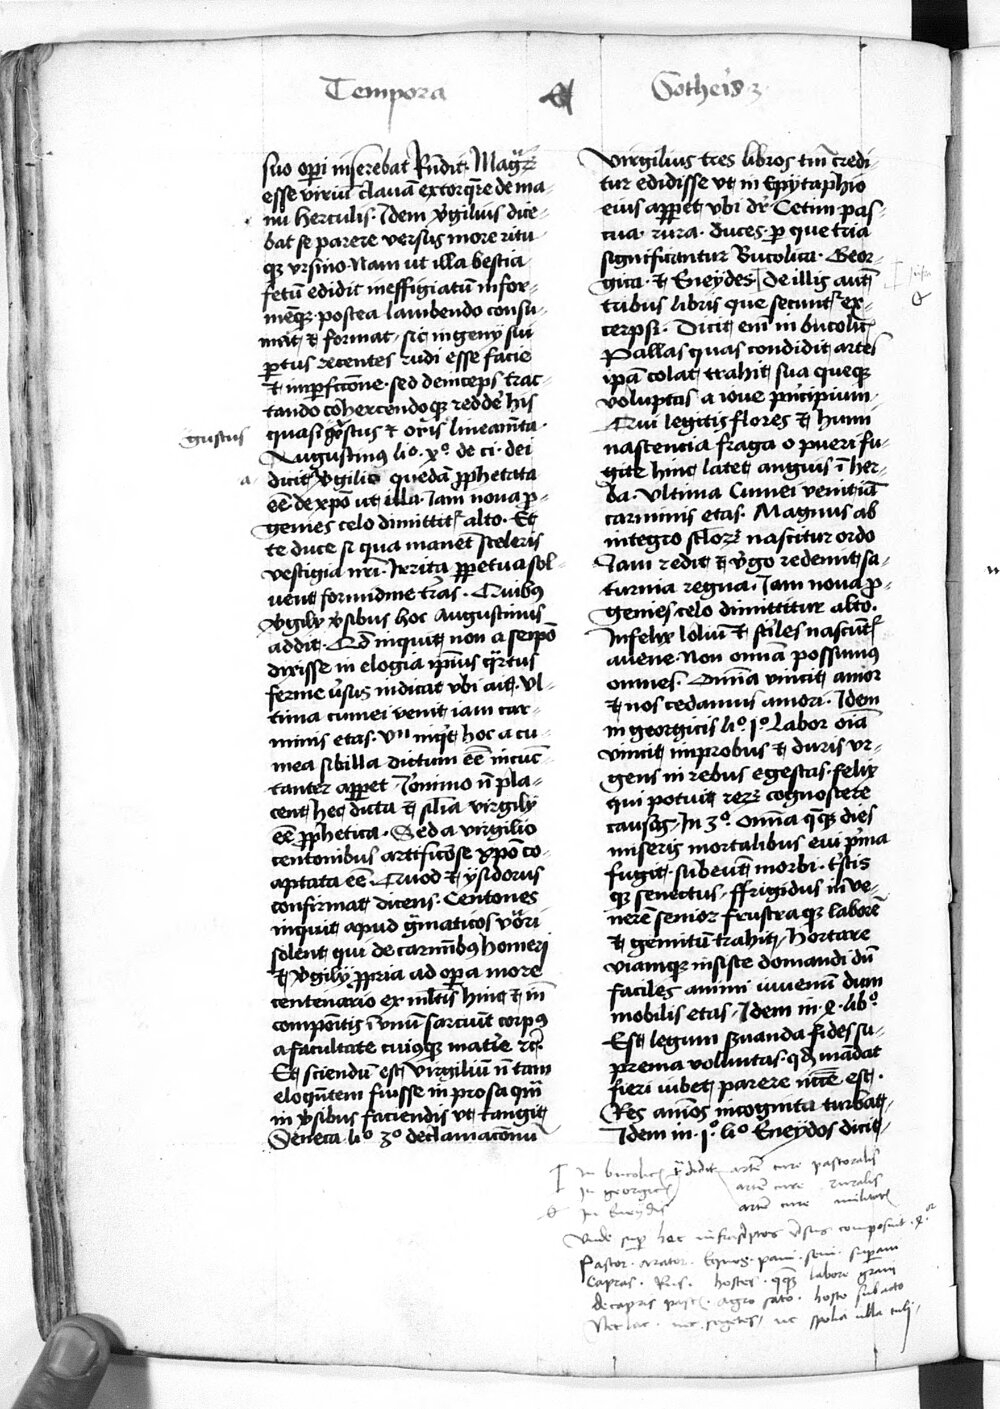 Tempora et Gotheis 3
suo opi inserebat Rñdit. Magñ
esse viriũ clavam extorqre de ma-
nu herculis. Idem vgilius dice-
bat se parere versus more ritu
qz vrsino. Nam ut illa bestia
fetũ edidit ineffigiatũ infor-
meqz. postea lambendo consu-
mat et format. sic ingenij sui
ptus recentes rudi esse facie
et impfectione. sed deinceps trac-
tando cohercendoqz redde his
quasi gestus et oris lineamta.
gustus
Augustinus lio. xo. de ci. dei
dicit vgilio quedã pphetata
a.
ẽe de xpo ut illa. Iam nova p-
genies celo dimittitr alto. Et
te duce si qua manet sceleris
vestigia nri. Irrita ppetua sol-
vent formidine tras. Quibus
vgilij vsibus hoc Augustinus
addit. Qd inquit non a seipo
dixisse in elogia ipius qrtus
ferme vsus indicat vbi ait. Vl-
tima cumei venit iam car-
minis etas. vñ inqt hoc a cu-
mea sibilla dictum ẽe incũc
tanter appet Ieronimo ñ pla-
cent hec dicta et silia virgilij
ẽe pphetica. Sed a virgilio
centonibus artificose xpo co-
aptata ẽe. Quod et ysidorus
confirmat dicens. Centones
inquit apud gmaticos vocari
solent qui de carminibus homeri
et vgilij ppria ad opa more
centenario ex mltis hinc et in
compositis ĩ vnũ sarciũt corpus
a facultate cuiusqz matie rc.
Et sciendũ est virgiliũ ñ tam
eloqntem fuisse in prosa qm
in vsibus faciendis vt tangit
Seneca lio 3o declamaconũ
Virgilius tres libros tm credi-
tur edidisse vt in Epytaphio
eius appet vbi dr Cecini pas-
cua. rura. duces. p que tria
significantur Bucolica. Geor-
gica. et Eneydes de illis aut
tribus libris que secuntr ex-
cerpsi. Dicit eni in bucolic
Pallas quas condidit artes
ipa colat trahit sua queqz
voluptas a iove pncipium.
Qui legitis flores et humi
nascencia fraga o pueri fu-
gite hinc latet anguis ĩ her-
ba. Vltima Cumei venit iã
carminis etas. Magnus ab
integro sclor nascitur ordo
Iam redit et vgo redeunt sa-
turnia regna. Iam nova p-
genies celo dimittitur alto.
Infelix loliũ et stiles nascutr
avene. Non omia possumus
omnes. Omia vincit amor
et nos cedamus amori. Idem
in georgicis lio. 1o. Labor oia
vincit improbus et duris vr-
gens in rebus egestas. felix
qui potuit rerr cognoscere
causas. In 3o. Omia qqz dies
miseris mortalibus evi pma
fugit. subeut morbi. tstis
qz senectus. ffrigidus in ve-
nere senior frustraqz laborẽ
et gemitũ trahit. Hortare
viamqz insiste domandi dũ
faciles animi iuvenũ dum
mobilis etas. Idem in. 4. libo.
Est legum svanda fides su-
prema voluntas. qd mandat
fieri iubet parere ncẽ est.
Res animos incognita turbat.
Idem in. 1o. lio Eneydos dicit
In bucolic edidit artẽ cure pastoralis
In georgic artẽ cure ruralis
In Eneydis artẽ cure militaris
Unde sup hoc infrascriptos vsus composuit.
Pastor. arator. Eques. pavi. colui. supavi
Capras. Rus. hostes. qqz labore gravi
de capris pastis. agro sato. hoste subacto
Nec lac. nec segetes. nec spolia ulla tuli.